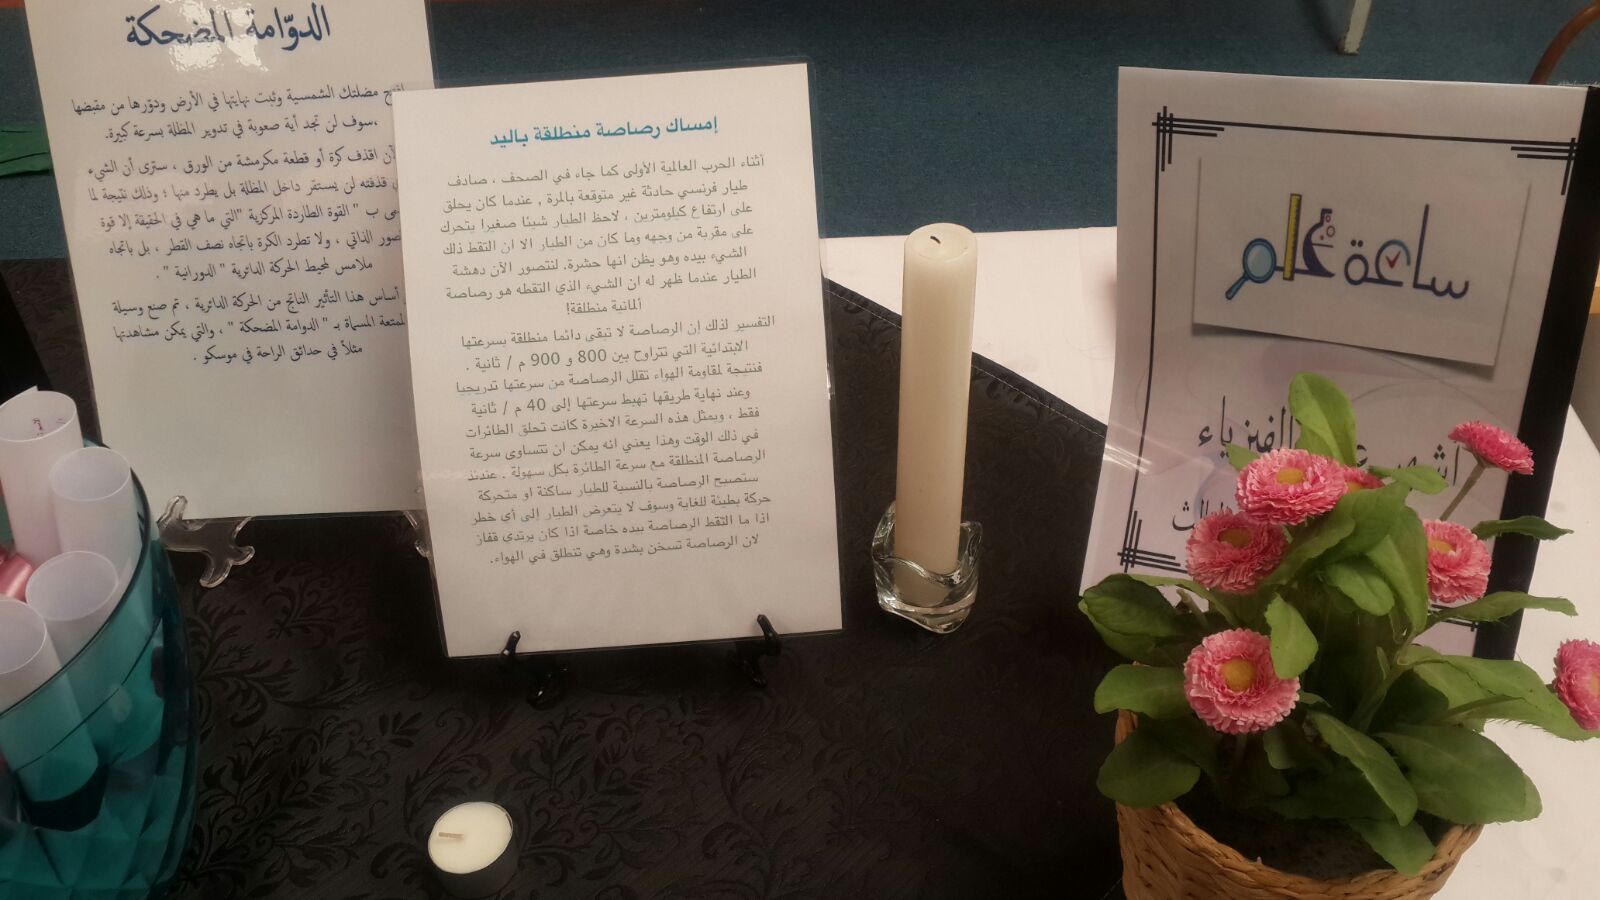 الدوّامة المضحكة
مضلتك الشمسية وثبت نهايتها في الأرض ودوّرها من مقبضها
،سوف لن تجد أية صعوبة في تدوير المظلة بسرعة كبيرة.
اقذف كرة أو قطعة مكرمشة من الورق ، سترى أن الشيء
قذفته لن يستقر داخل المظلة بل يطرد منها ؛ وذلك نتيجة لما
ب " القوة الطاردة المركزية "التي ما هي في الحقيقة إلا قوة
الذاتي ، ولا تطرد الكرة بإتجاه نصف القطر ، بل باتجاه
ملامس لمحيط الحركة الدائرية " الدورانية " .
أساس هذا التأثير الناتج من الحركة الدائرية ، تم صنع وسيلة
المسماة بـ " الدوامة المضحكة " ، والتي يمكن مشاهدتها
مثلاً في حدائق الراحة في موسكو .
إمساك رصاصة منطلقة باليد
أثناء الحرب العالمية الأولى كما جاء في الصحف ، صادف
طيار فرنسي حادثة غير متوقعة بالمرة , عندما كان يحلق
على ارتفاع كيلومترين ، لاحظ الطيار شيئا صغيرا يتحرك
على مقربة من وجهه وما كان من الطيار الا ان التقط ذلك
الشيء بيده وهو يظن انها حشرة. لنتصور الآن دهشة
الطيار عندما ظهر له ان الشيء الذي التقطه هو رصاصة
ألمانية منطلقة!
التفسير لذلك إن الرصاصة لا تبقى دائما منطلقة بسرعتها
الابتدائية التي تتراوح بين 800 و 900 م / ثانية .
فنتيجة لمقاومة الهواء تقلل الرصاصة من سرعتها تدريجيا
وعند نهاية طريقها تهبط سرعتها إلى 40 م / ثانية
فقط ، وبمثل هذه السرعة الاخيرة كانت تحلق الطائرات
في ذلك الوقت وهذا يعني انه يمكن ان تتساوى سرعة
الرصاصة المنطلقة مع سرعة الطائرة بكل سهولة . عندئذ
ستصبح الرصاصة بالنسبة للطيار ساكنة او متحركة
حركة بطيئة للغاية وسوف لا يتعرض الطيار إلى أي خطر
اذا ما التقط الرصاصة بيده خاصة اذا كان يرتدي قفاز
لان الرصاصة تسخن بشدة وهي تنطلق في الهواء.
ساعة علم
الفيزياء